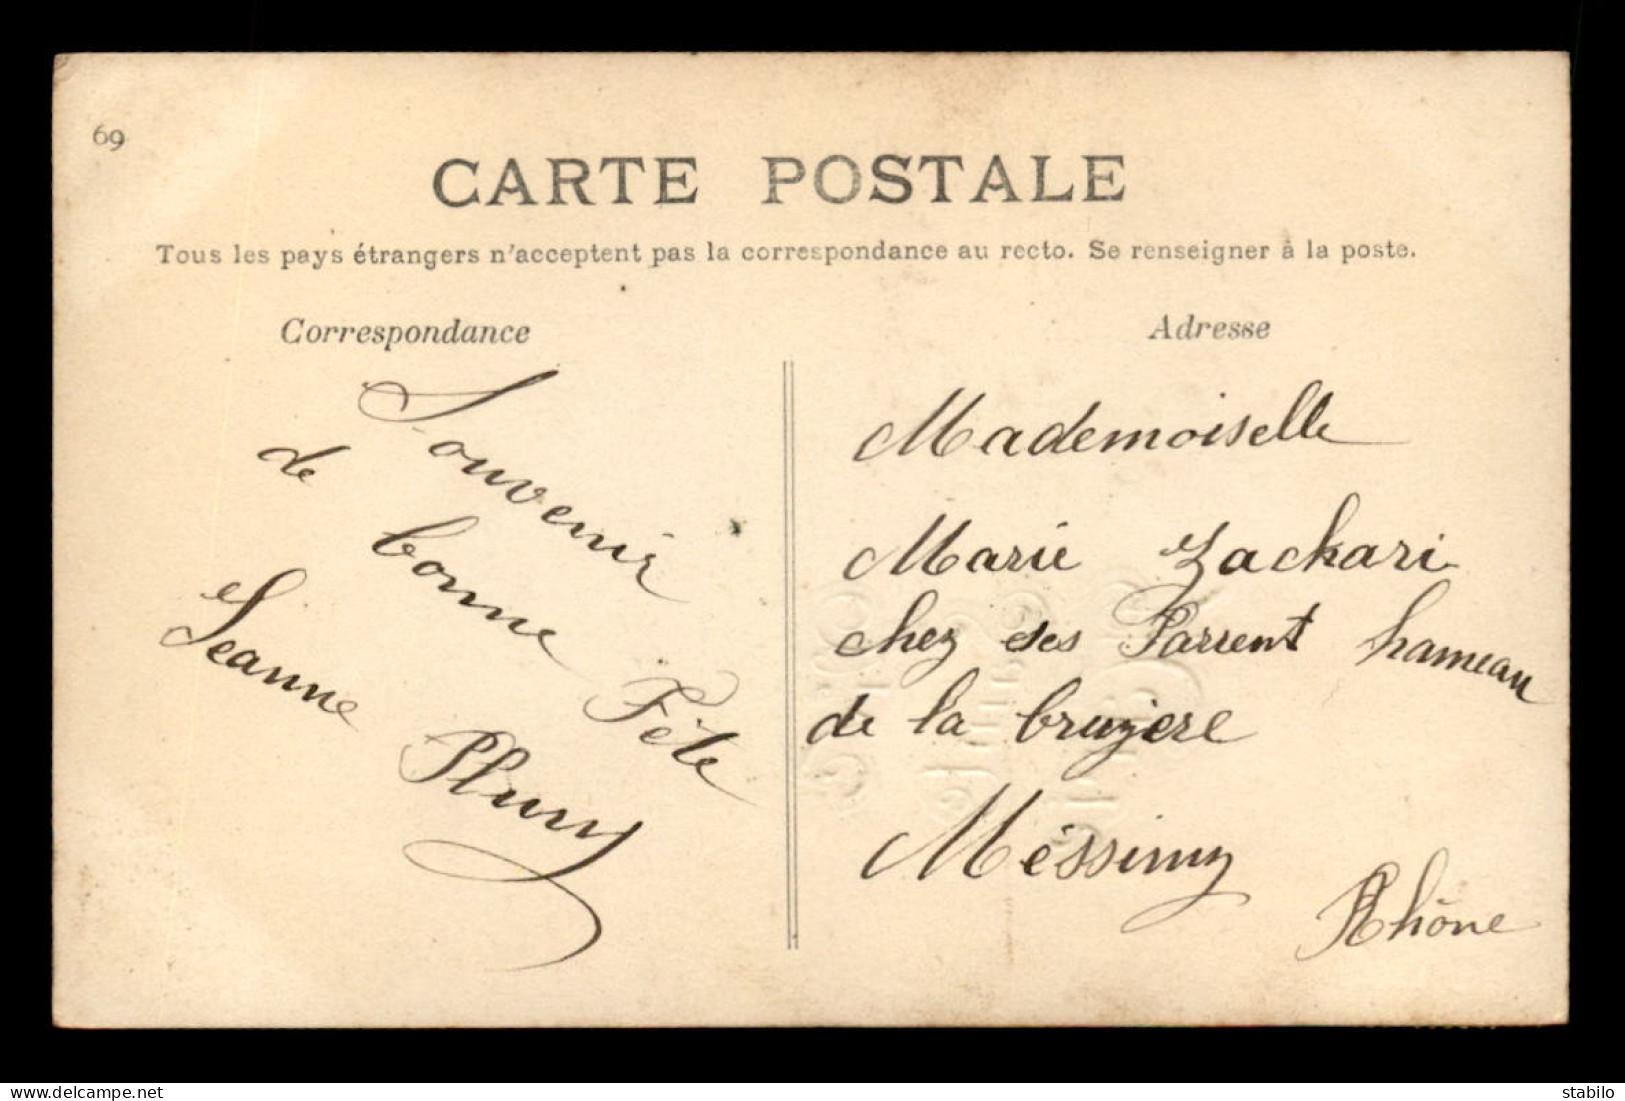 69
CARTE POSTALE
Tous les pays étrangers n'acceptent pas la correspondance au recto. Se renseigner à la poste.
Correspondance
Souvenir
de bonne Fête
Jeanne Pluvy
Adresse
Mademoiselle
Marie Zackari
chez ses Parrent hameau
de la bruyere
Méssimy
Rhône
www.delcampe.net
stabilo